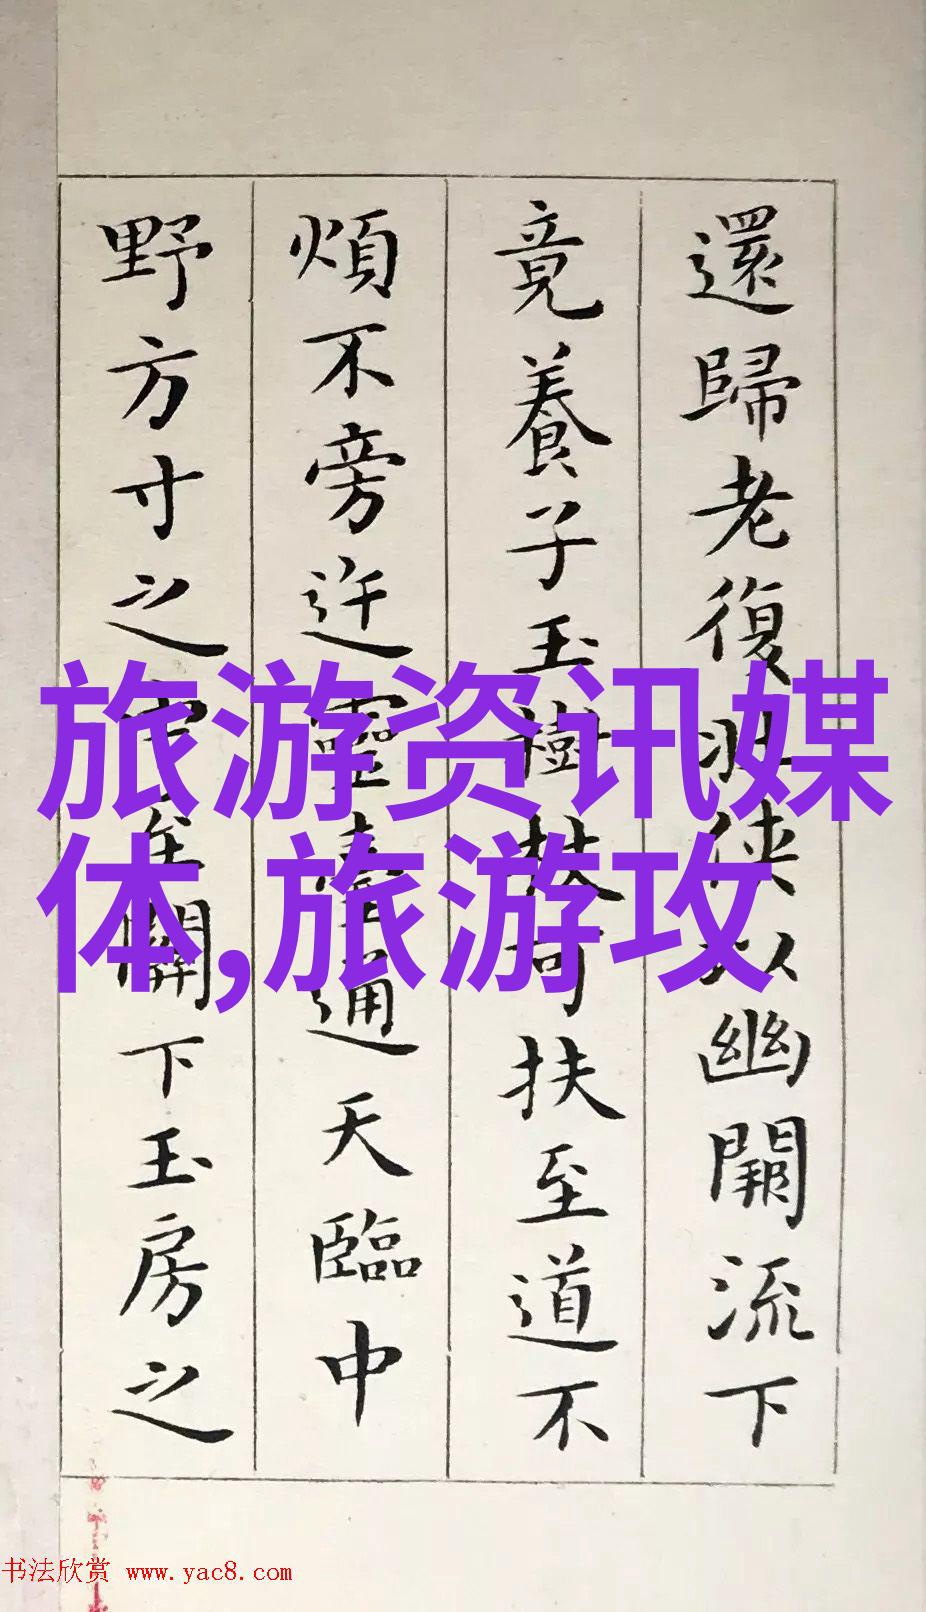 還歸老復壯侠以幽闕流下
竟養子玉樹杖可扶至道不
煩不旁迕靈臺通天臨中
野方寸之中至關下玉房之
旅游资讯媒
体,旅游攻
书法欣赏 www.yac8.com